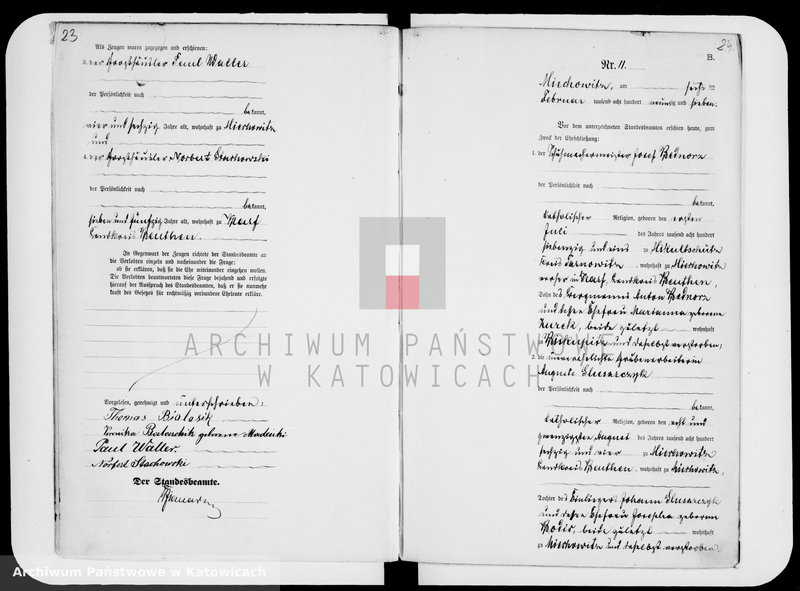 23
Als Zeugen waren zugezogen und erschienen:
3. der Paul Waller
der Persönlichkeit nach
bekannt,
vier und sechzig Jahre alt, wohnhaft zu Miechowitz
und
4. der Norbert Stachowski
der Persönlichkeit nach
bekannt,
sieben und fünfzig Jahre alt, wohnhaft zu Karf
Landkreis Beuthen.
In Gegenwart der Zeugen richtete der Standesbeamte an
die Verlobten einzeln und nacheinander die Frage:
ob sie erklären, daß sie die Ehe miteinander eingehen wollen.
Die Verlobten beantworteten diese Frage bejahend und erfolgte
hierauf der Ausspruch des Standesbeamten, daß er sie nunmehr
kraft des Gesetzes für rechtmäßig verbundene Eheleute erkläre.
Vorgelesen, genehmigt und unterschrieben:
Thomas Bialasik
geborene
Paul Waller.
Norbert Stachowski
Der Standesbeamte.
24
B.
Nr. 11.
Miechowitz, am sechs ten
Februar tausend acht hundert neunzig und sieben.
Vor dem unterzeichneten Standesbeamten erschien heute, zum
Zweck der Eheschließung:
1. der Schuhmachermeister Josef Bednorz
der Persönlichkeit nach
bekannt,
katholischer Religion, geboren den ersten
Juli des Jahres tausend acht hundert
siebenzig und eins zu Mikultschütz
Kreis Tarnowitz, wohnhaft zu Miechowitz
vorher in Karf, Landkreis Beuthen,
Sohn des Bergmanns Anton Bednorz
und dessen Ehefrau Marianna geborene
beide zuletzt wohnhaft
zu und daselbst verstorben;
2. die unverehelichte Grubenarbeiterin
Auguste Slusarczyk
der Persönlichkeit nach
bekannt,
katholischer Religion, geboren den acht und
zwanzigsten August des Jahres tausend acht hundert
siebzig und vier zu Miechowitz
Landkreis Beuthen, wohnhaft zu Miechowitz,
Tochter des Einliegers Johann Slusarczyk
und dessen Ehefrau Josepha geborene
beide zuletzt wohnhaft
zu Miechowitz und daselbst verstorben.
ARCHIWUM PAŃSTWOWE
W KATOWICACH
Archiwum Państwowe w Katowicach